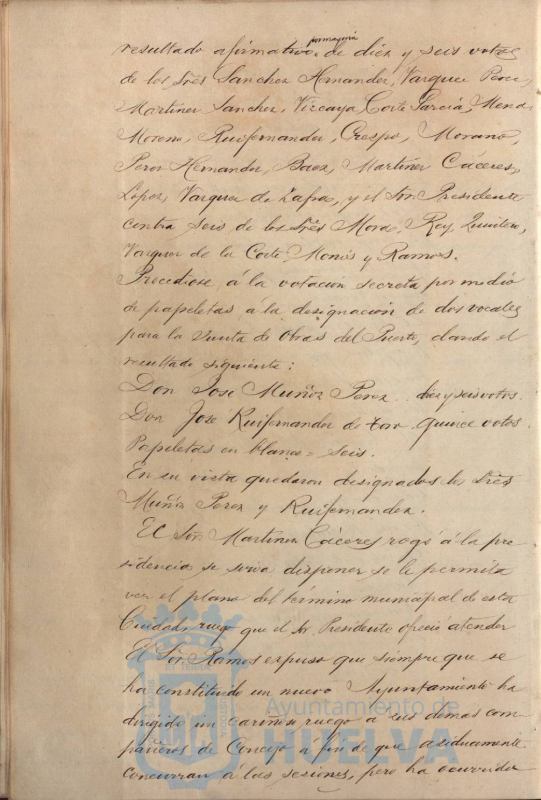 por mayoria
resultado afirmativo de diez y seis votos
de los Sres Sanchez Hernandez, Vazquez Perez,
Martinez Sanchez, Vizcaya, Corte Garcia, Mena
Moreno, Ruifernandez, Crespo, Morano,
Perez Hernandez, Baez, Martinez Cáceres,
Lopez, Vazquez de Zafra, y el Sor Presidente
contra seis de los Sres Mora, Rey, Quintero,
Vazquez de la Corte, Monis y Ramos.
Procediose á la votacion secreta por medio
de papeletas á la designacion de dos vocales
para la Junta de Obras del Puerto, dando el
resultado siguiente:
Don Jose Muñoz Perez diez y seis votos.
Don Jose Ruifernandez de Toro quince votos.
Papeletas en blanco = seis.
En su vista quedaron designados los Sres
Muñoz Perez y Ruifernandez.
El Sor Martinez Cáceres rogó á la pre
sidencia se sirva disponer se le permita
ver el plano del término municipal de esta
Ciudad, ruego que el Sr Presidente ofreció atender
El Sor Ramos expuso que siempre que se
ha constituido un nuevo Ayuntamiento ha
dirigido un cariñoso ruego á sus demas com-
pañeros de Concejo á fin de que asiduamente
concurran á las sesiones, pero ha ocurrido
Ayuntamiento de
HUELVA